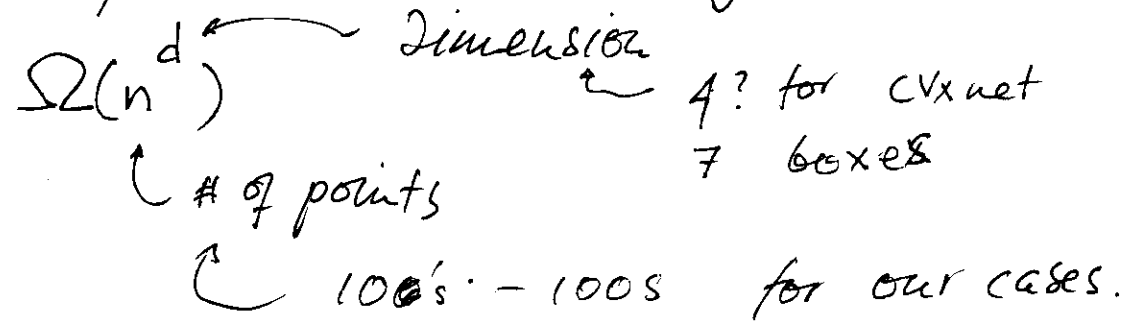 Ω(n^d) Dimension
4? for cvxnet
7 boxes
# of points
100's - 100s for our cases.